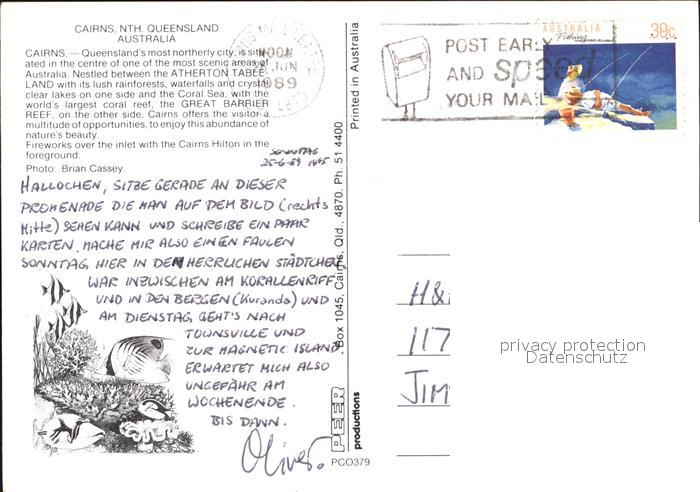 CAIRNS, NTH. QUEENSLAND
AUSTRALIA
CAIRNS, — Queensland's most northerly city, is situ-
ated in the centre of one of the most scenic areas of
Australia. Nestled between the ATHERTON TABLE-
LAND with its lush rainforests, waterfalls and crystal
clear lakes on one side and the Coral Sea, with the
world's largest coral reef, the GREAT BARRIER
REEF, on the other side, Cairns offers the visitor a
multitude of opportunities, to enjoy this abundance of
nature's beauty.
Fireworks over the inlet with the Cairns Hilton in the
foreground.
Photo: Brian Cassey.
SONNTAG
25-6-89 1445
HALLOCHEN, SITZE GERADE AN DIESER
PROMENADE DIE MAN AUF DEM BILD (rechts
Mitte) SEHEN KANN UND SCHREIBE EIN PAAR
KARTEN. MACHE MIR ALSO EINEN FAULEN
SONNTAG, HIER IN DEM HERRLICHEN STÄDTCHEN.
WAR INZWISCHEN AM KORALLENRIFF
UND IN DEN BERGEN (Kuranda) UND
AM DIENSTAG, GEHT'S NACH
TOWNSVILLE UND
ZUR MAGNETIC ISLAND
ERWARTET MICH ALSO
UNGEFÄHR AM
WOCHENENDE.
BIS DANN.
Oliver.
Printed in Australia
Box 1045, Cairns, Qld., 4870. Ph. 51 4400
PEER
productions
PCO379
NOON
JUN
1989
4870
POST EARLY
AND speed
YOUR MAIL
AUSTRALIA
Fishing
39c
H&
117
JIM
privacy protection
Datenschutz